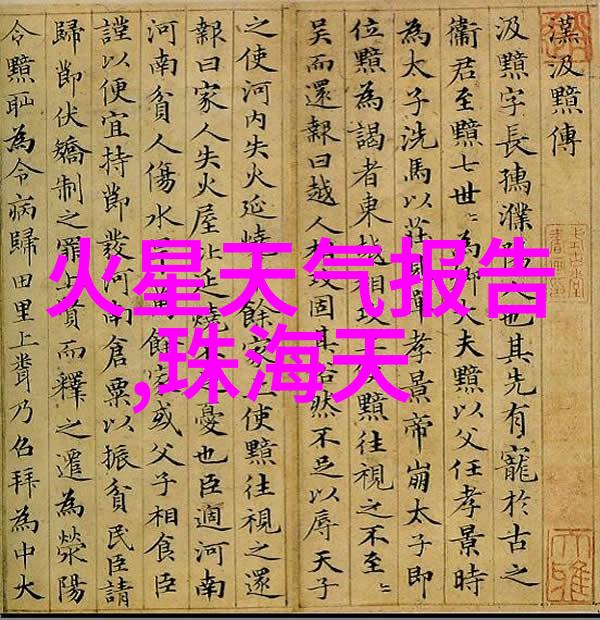 漢汲黯傳
汲黯字長孺濮陽人也其先有寵於古之
衞君至黯七世〻為卿大夫黯以父任孝景時
為太子洗馬以莊憚孝景帝崩太子即
位黯為謁者東越相攻上使黯往視之不至〻
吳而還報曰越人相攻固其俗然不足以辱天子
之使河内失火延燒餘家上使黯往視之還
報曰家人失火屋比延燒不憂也臣適河南
河南貧人傷水旱萬餘家或父子相食臣
謹以便宜持節發河南倉粟以振貧民臣請
歸節伏矯制之罪上賢而釋之遷為滎陽
令黯恥為令病歸田里上聞乃召拜為中大
火星天气报告
,珠海天